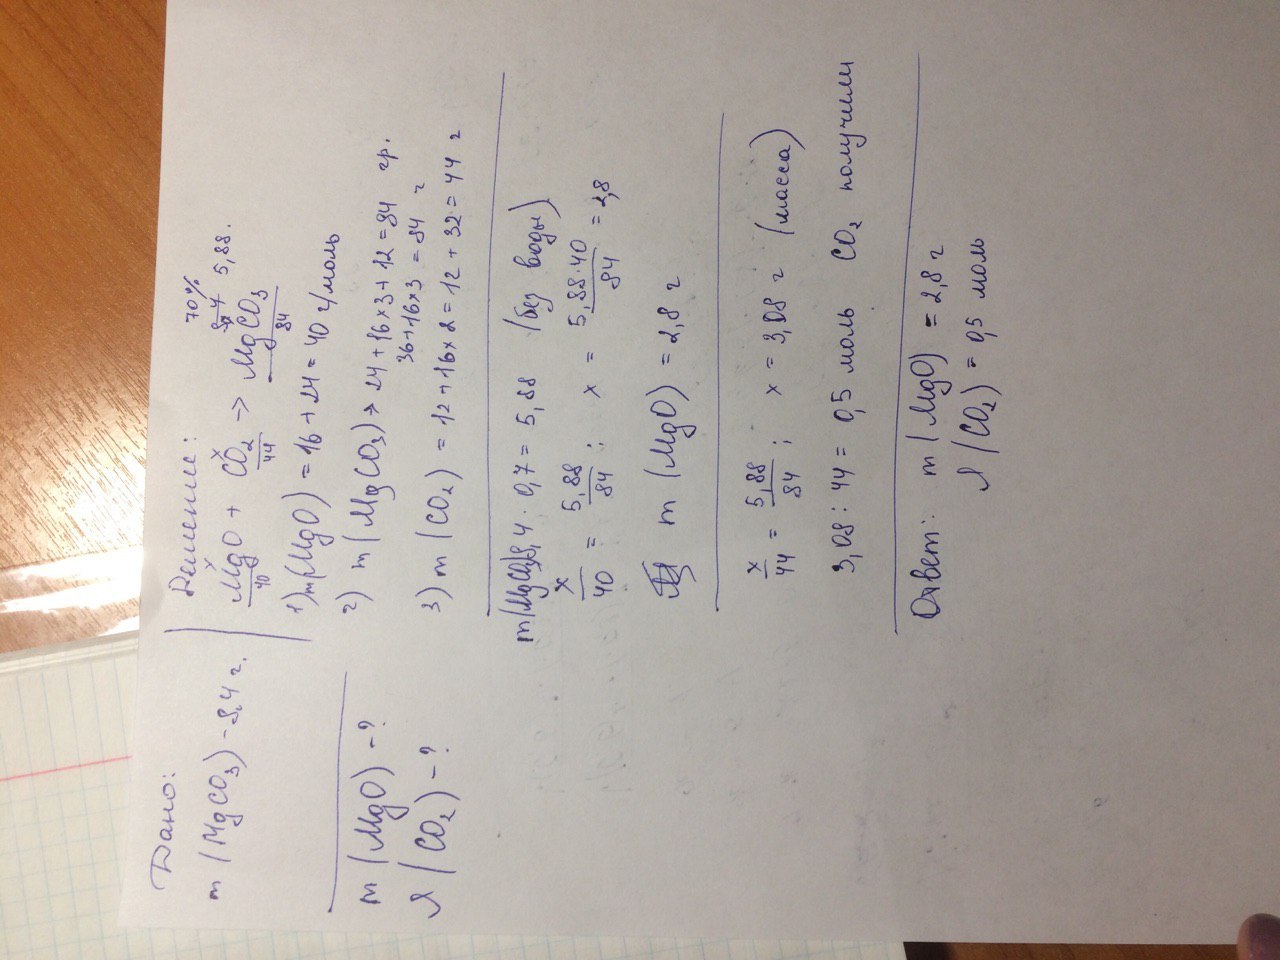 Дано:
m (MgCO3) - 8,4 г.
m (MgO) - ?
λ (CO2) - ?
Решение:
70%
x x 8,4 5,88.
MgO + CO2 → MgCO3
40 44 84
1) m(MgO) = 16 + 24 = 40 г/моль
2) m (MgCO3) → 24 + 16×3 + 12 = 84 гр.
36 + 16×3 = 84 г
3) m (CO2) = 12 + 16×2 = 12 + 32 = 44 г
m(MgCO3) 8,4 · 0,7 = 5,88 (без воды)
x/40 = 5,88/84 ; x = 5,88·40/84 = 2,8
m (MgO) = 2,8 г
x/44 = 5,88/84 ; x = 3,08 г (масса)
3,08 : 44 = 0,5 моль CO2 получили
Ответ: m (MgO) = 2,8 г
λ (CO2) = 0,5 моль